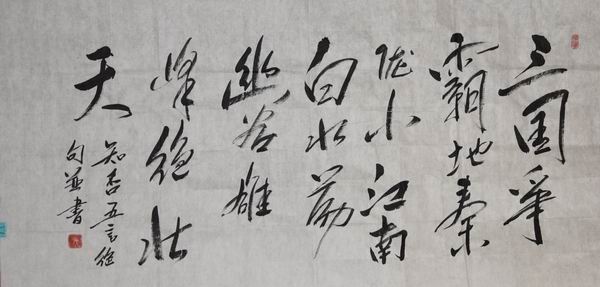 三国争
霸地秦
陇小江南
白水荡
幽谷雄
峰绝壮
天
知否五言绝
句並書